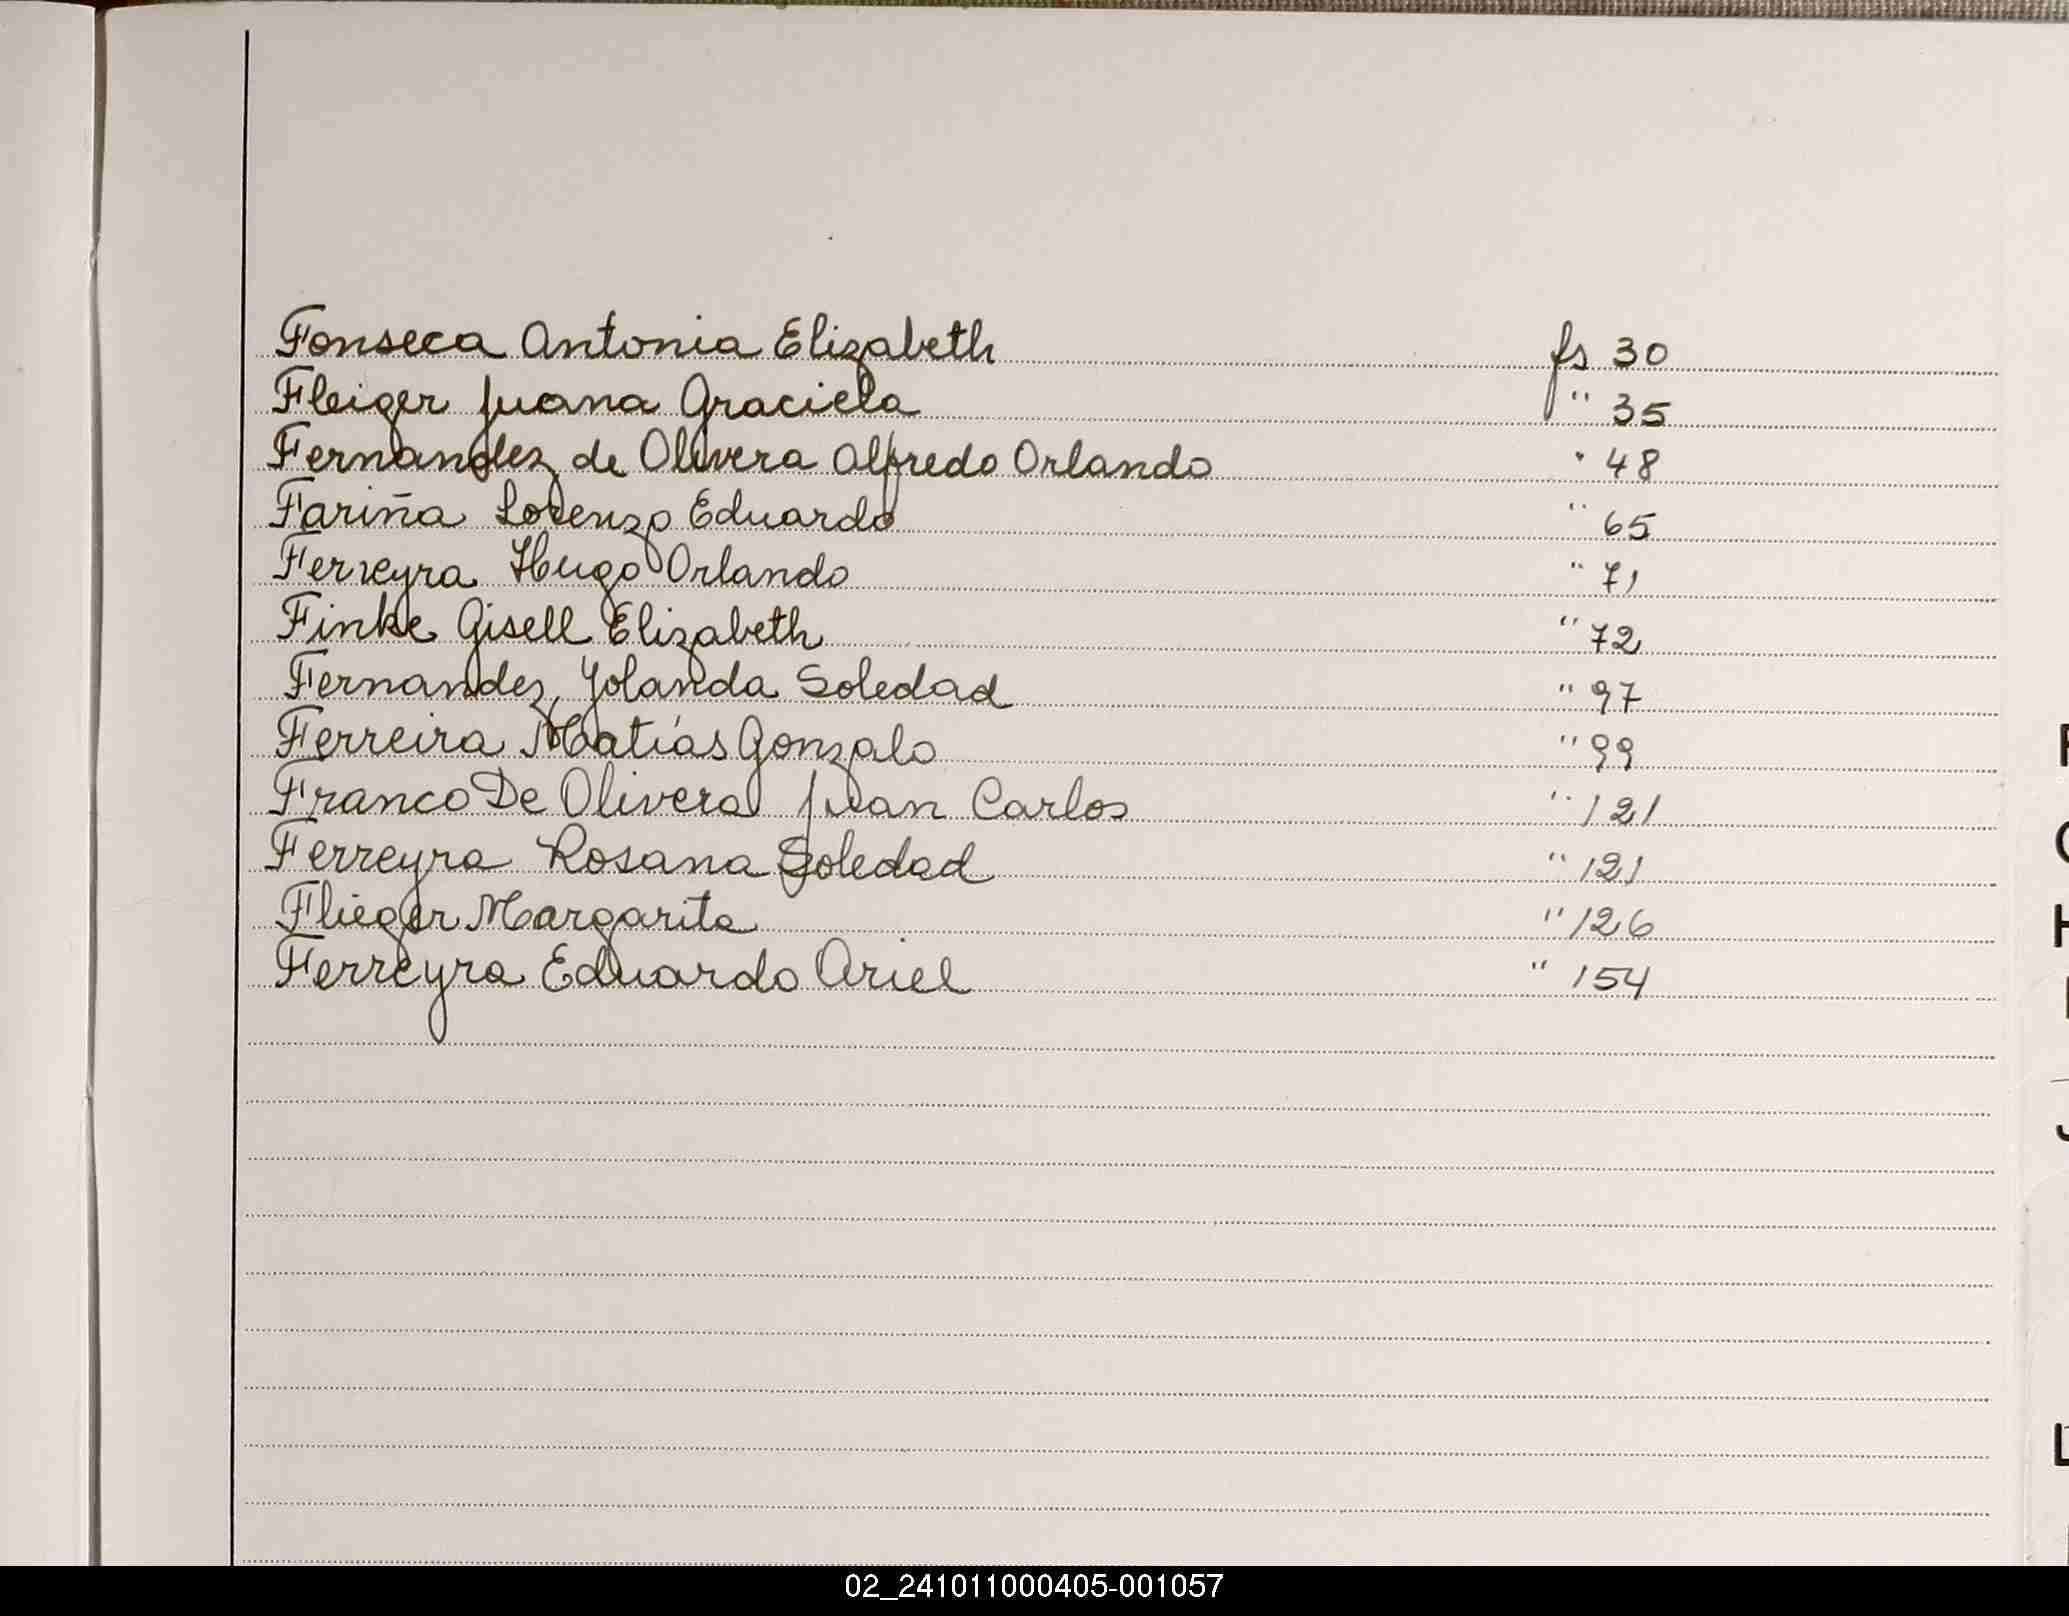 Fonseca Antonia Elizabeth fs 30
Fleiger Juana Graciela " 35
Fernandez de Olivera Alfredo Orlando " 48
Fariña Lorenzo Eduardo " 65
Ferreyra Hugo Orlando " 71
Finke Gisell Elizabeth " 72
Fernandez, Yolanda Soledad " 97
Ferreira Matías Gonzalo " 99
Franco De Olivera Juan Carlos " 121
Ferreyra Rosana Soledad " 121
Flieger Margarita " 126
Ferreyra Eduardo Ariel " 154
02_241011000405-001057